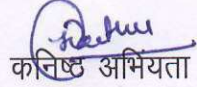 कनिष्ठ अभियंता